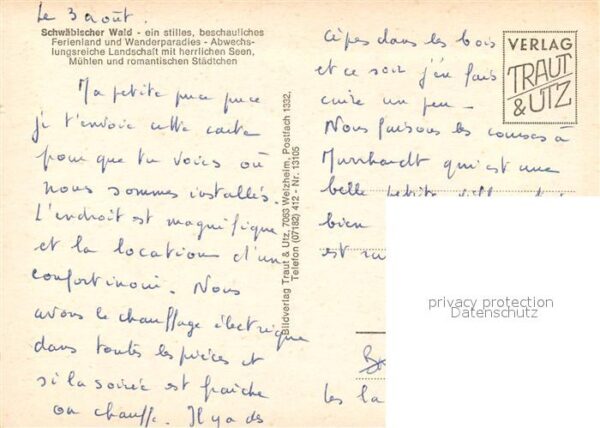 Le 3 août.
Schwäbischer Wald - ein stilles, beschauliches
Ferienland und Wanderparadies - Abwechs-
lungsreiche Landschaft mit herrlichen Seen,
Mühlen und romantischen Städtchen
Ma petite puce puce
je t'envoie cette carte
pour que tu voies où
nous sommes installés.
L'endroit est magnifique
et la location d'un
confort inouï. Nous
avons le chauffage électrique
dans toutes les pièces et
si la soirée est fraîche
on chauffe. Il y a des
Bildverlag Traut & Utz, 7063 Welzheim, Postfach 1332,
Telefon (07182) 412 - Nr. 13105
cèpes dans les bois
et ce soir j'en fais
cuire un peu.
Nous faisons les courses à
Murrhardt qui est une
belle petite
bien
est
les la
VERLAG
TRAUT
& UTZ
privacy protection
Datenschutz